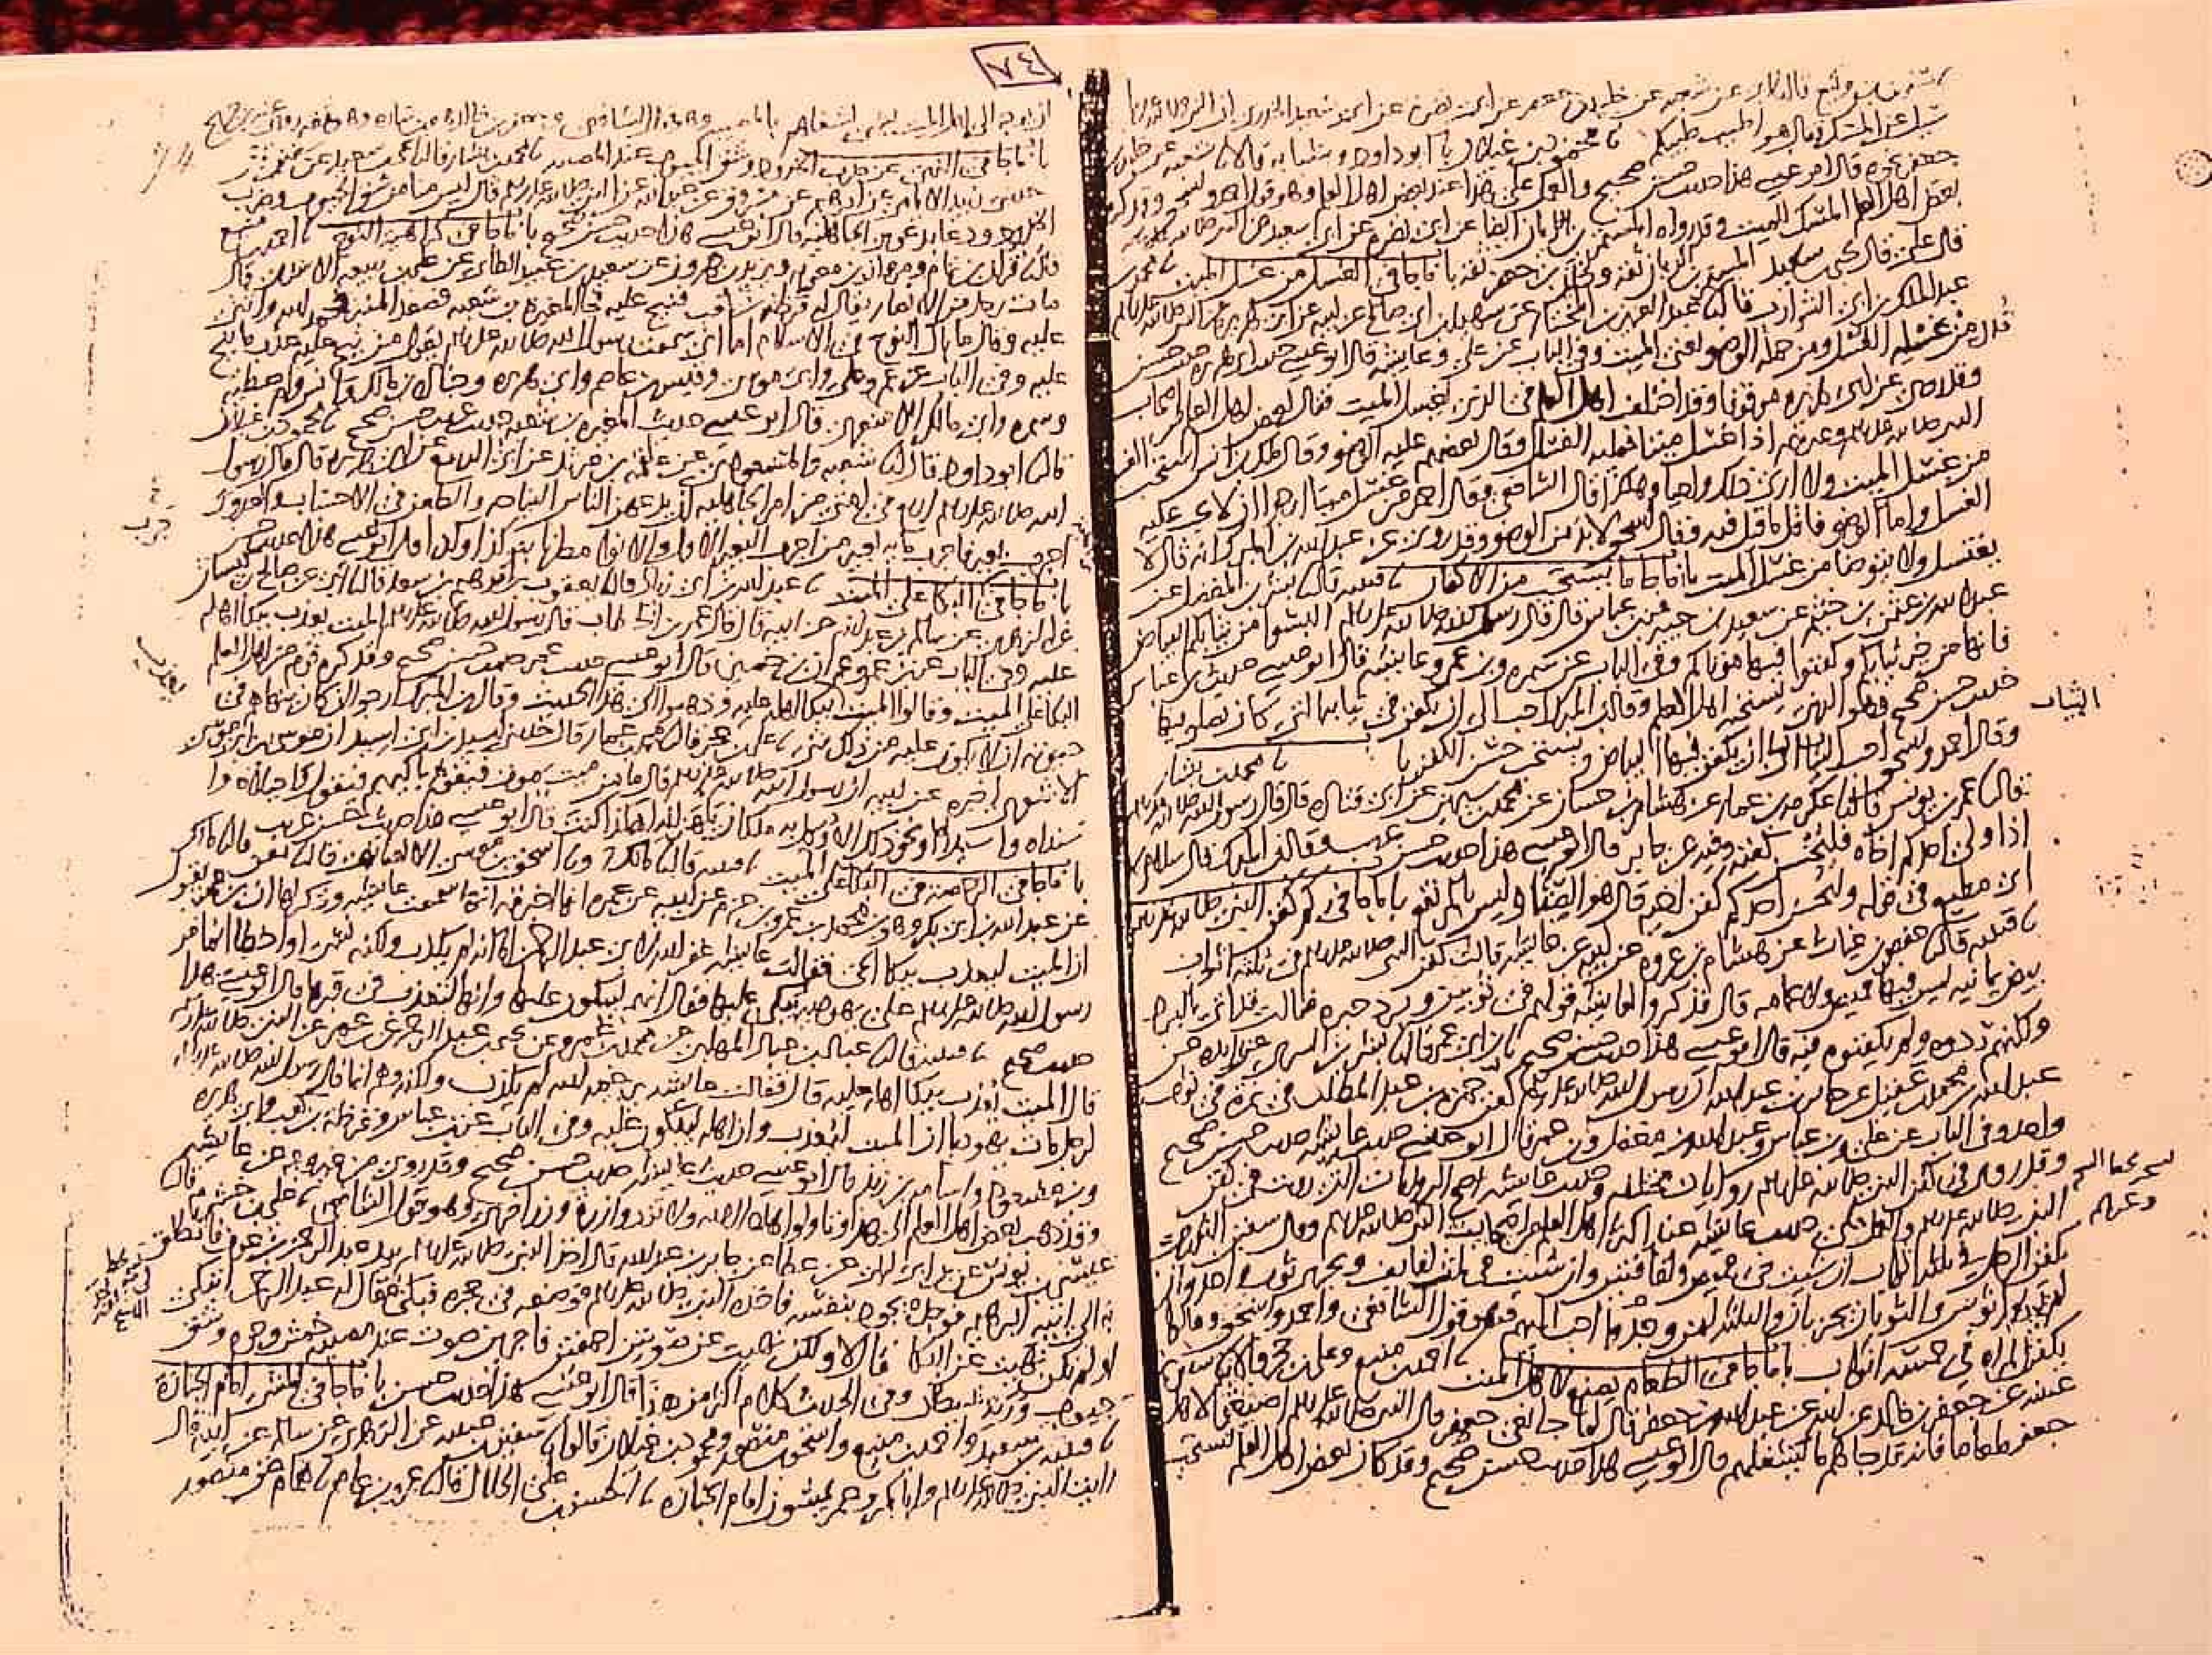 سفين بن وكيع قال نا ابى عن شعبه عن خليد بن جعفر عن ابى نضرة عن ابى سعيد الخدرى ان النبى صلى الله عليه وسلم
سئل عن المسك فقال هو اطيب طيبكم نا محمود بن غيلان نا ابو داود وشبابه قالا نا شعبه عن خليد بن
جعفر نحوه قال ابو عيسى هذا حديث حسن صحيح والعمل على هذا عند بعض اهل العلم وهو قول احمد واسحق وقد كره
بعض اهل العلم المسك للميت وقد رواه المستمر بن الريان ايضا عن ابى نضره عن ابى سعيد عن النبى صلى الله عليه وسلم
قال على قال يحيى بن سعيد المستمر بن الريان ثقه وخليد بن جعفر ثقه باب ما جا فى الغسل من غسل الميت نا محمد بن
عبد الملك بن ابى الشوارب قال نا عبد العزيز بن المختار عن سهيل بن ابى صالح عن ابيه عن ابى هريره عن النبى صلى الله عليه وسلم
قال من غسله الغسل ومن حمله الوضو يعنى الميت وفى الباب عن على وعايشه قال ابو عيسى حديث ابى هريره حديث حسن
وقد روى عن ابى هريره موقوفا وقد اختلف اهل العلم فى الذى يغسل الميت فقال بعض اهل العلم من اصحاب
النبى صلى الله عليه وسلم وغيرهم اذا غسل ميتا فعليه الغسل وقال بعضهم عليه الوضو وقال ملك بن انس استحب الغسل
من غسل الميت ولا ارى ذلك واجبا وهكذا قال الشافعى وقال احمد من غسل ميتا ارجوا ان لا يجب عليه
الغسل واما الوضو فاقل ما قيل فيه وقال اسحق لا بد من الوضو وقد روى عن عبد الله بن المبرك انه قال لا
يغتسل ولا يتوضا من غسل الميت باب ما جا ما يستحب من الاكفان نا قتيبه قال نا بشر بن المفضل عن
عبد الله بن عثمن بن خثيم عن سعيد بن جبير عن بن عباس قال قال رسول الله صلى الله عليه وسلم البسوا من ثيابكم البياض
فانها من خير ثيابكم وكفنوا فيها موتاكم وفى الباب عن سمره وبن عمر وعايشه قال ابو عيسى حديث بن عباس
حديث حسن صحيح وهو الذى يستحبه اهل العلم وقال بن المبرك احب الى ان يكفن فى ثيابه التى كان يصلى فيها
وقال احمد واسحق احب الثياب الينا ان يكفن فيها البياض ويستحب حسن الكفن باب نا محمد بن بشار
قال نا عمر بن يونس قال نا عكرمه بن عمار عن هشام بن حسان عن محمد بن سيرين عن ابى قتاده قال قال رسول الله صلى الله عليه وسلم
اذا ولى احدكم اخاه فليحسن كفنه وفيه عن جابر قال ابو عيسى هذا حديث حسن غريب وقال بن المبرك قال سلام بن
ابى مطيع فى قوله وليحسن احدكم كفن اخيه قال هو الصفا وليس بالمرتفع باب ما جا فى كم كفن النبى صلى الله عليه وسلم
نا قتيبه قال نا حفص بن غياث عن هشام بن عروه عن ابيه عن عايشه قالت كفن النبى صلى الله عليه وسلم فى ثلثه اثواب
بيض يمانيه ليس فيها قميص ولا عمامه قال فذكروا لعايشه قولهم فى ثوبين وبرد حبره فقالت قد اتى بالبرد
ولكنهم ردوه ولم يكفنوه فيه قال ابو عيسى هذا حديث حسن صحيح نا ابن ابى عمر قال نا بشر بن السرى عن زايده عن
عبد الله بن محمد بن عقيل عن جابر بن عبد الله ان رسول الله صلى الله عليه وسلم كفن حمزه بن عبد المطلب فى نمرة فى ثوب
واحد وفى الباب عن على وبن عباس وعبد الله بن مغفل وبن عمر قال ابو عيسى حديث عايشه حديث حسن صحيح
وقد روى فى كفن النبى صلى الله عليه وسلم روايات مختلفه وحديث عايشه اصح الروايات التى رويت فى كفن
النبى صلى الله عليه وسلم والعمل على حديث عايشه عند اكثر اهل العلم من اصحاب النبى صلى الله عليه وسلم وقال سفين الثورى
يكفن الرجل فى ثلثه اثواب ان شيت فى قميص ولفافتين وان شيت فى ثلث لفايف ويجزى ثوب واحد وان
لم يجدوا ثوبين والثوبان يجزيان والثلثه لمن وجدوا احب اليهم وهو قول الشافعى واحمد واسحق وقالوا
يكفن المراه فى خمسه اثواب باب ما جا فى الطعام يصنع لاهل الميت نا احمد بن منيع وعلى بن حجر قالا نا سفين بن
عيينه عن جعفر بن خالد عن ابيه عن عبد الله بن جعفر قال لما جا نعى جعفر قال النبى صلى الله عليه وسلم اصنعوا لاهل
جعفر طعاما فانه قد جاهم ما يشغلهم قال ابو عيسى هذا حديث حسن صحيح وقد كان بعض اهل العلم يستحب
الثياب
وغيرهم
٧٤
74
ان يوجه الى اهل الميت بشى لشغلهم بالمصيبه وهو قول الشافعى وجعفر بن خالد هو بن ساره وهو ثقه روى عنه بن جريج
باب ما جا فى النهى عن ضرب الخدود وشق الجيوب عند المصيبه نا محمد بن بشار قال نا يحيى بن سعيد عن سفين قال
حدثنى زبيد الايامى عن ابرهيم عن مسروق عن عبد الله عن النبى صلى الله عليه وسلم قال ليس منا من شق الجيوب وضرب
الخدود ودعا بدعوى الجاهليه قال ابو عيسى هذا حديث حسن صحيح باب ما جا فى كراهيه النوح نا احمد بن منيع
قال نا قران بن تمام ومروان بن معويه ويزيد بن هرون عن سعيد بن عبيد الطائى عن على بن ربيعه الاسدى قال
مات رجل من الانصار يقال له قرظه بن كعب فنيح عليه فجا المغيره بن شعبه فصعد المنبر فحمد الله واثنى
عليه وقال ما بال النوح فى الاسلام اما انى سمعت رسول الله صلى الله عليه وسلم يقول من نيح عليه عذب ما نيح
عليه وفى الباب عن عمر وعلى وابى موسى وقيس بن عاصم وابى هريره وجناده بن مالك وانس وام عطيه
وسمره وابى مالك الاشعرى قال ابو عيسى حديث المغيره بن شعبه حديث غريب حسن صحيح نا محمود بن غيلان
قال نا ابو داود قال نا شعبه والمسعودى عن علقمه بن مرثد عن ابى الربيع عن ابى هريره قال قال رسول
الله صلى الله عليه وسلم اربع فى امتى من امر الجاهليه لن يدعهن الناس النياحه والطعن فى الاحساب والعدوى
اجرب بعير فاجرب مايه بعير من اجرب البعير الاول والانوا مطرنا بنو كذا وكذا قال ابو عيسى هذا حديث حسن
باب ما جا فى البكا على الميت نا عبد الله بن ابى زياد قال نا يعقوب بن ابرهيم بن سعد قال نا ابى عن صالح بن كيسان
عن الزهرى عن سالم بن عبد الله عن ابيه قال قال عمر بن الخطاب قال رسول الله صلى الله عليه وسلم الميت يعذب ببكا اهله
عليه وفى الباب عن بن عمر وعمران بن حصين قال ابو عيسى حديث عمر حديث حسن صحيح وقد كره قوم من اهل العلم
البكا على الميت وقالوا الميت يعذب ببكا اهله عليه وذهبوا الى هذا الحديث وقال بن المبرك ارجوا ان كان ينهاهم فى
حيوته ان لا يكون عليه من ذلك شى نا على بن حجر قال نا محمد بن عمار قال حدثنى اسيد بن ابى اسيد ان موسى بن ابى موسى
الاشعرى اخبره عن ابيه ان رسول الله صلى الله عليه وسلم قال ما من ميت يموت فيقوم باكيهم فيقول واجبلاه وا
سنداه واسيداه ونحو ذلك الا وكل به ملكان يلهزانه اهكذا كنت قال ابو عيسى هذا حديث حسن غريب
باب ما جا فى الرخصه فى البكا على الميت نا قتيبه قال نا مالك ونا اسحق بن موسى الانصارى قال نا معن قال نا مالك
عن عبد الله بن ابى بكر وهو بن محمد بن عمرو بن حزم عن ابيه عن عمره انها اخبرته انها سمعت عايشه وذكر لها ان بن عمر يقول
ان الميت ليعذب ببكا الحى فقالت عايشه غفر الله لابى عبد الرحمن اما انه لم يكذب ولكنه نسى او اخطا انما مر
رسول الله صلى الله عليه وسلم على يهوديه يبكى عليها فقال انهم ليبكون عليها وانها لتعذب فى قبرها قال ابو عيسى هذا
حديث صحيح نا قتيبه قال نا عباد بن عباد المهلبى عن محمد بن عمرو عن يحيى بن عبد الرحمن عن بن عمر عن النبى صلى الله عليه وسلم
قال الميت يعذب ببكا اهله عليه قال فقالت عايشه يرحمه الله لم يكذب ولكنه وهم انما قال رسول الله صلى الله عليه وسلم
لرجل مات يهوديا ان الميت ليعذب وان اهله ليبكون عليه وفى الباب عن بن عباس وقرظه بن كعب وابى هريره
وبن مسعود واسامه بن زيد قال ابو عيسى حديث عايشه حديث حسن صحيح وقد روى من غير وجه عن عايشه
وقد ذهب بعض اهل العلم الى هذا وتاولوا هذه الايه ولا تزر وازرة وزر اخرى وهو قول الشافعى نا على بن خشرم قال نا
عيسى بن يونس عن بن ابى ليلى عن عطا عن جابر بن عبد الله قال اخذ النبى صلى الله عليه وسلم بيد عبد الرحمن بن عوف فانطلق
به الى ابنه ابراهيم فوجده يجود بنفسه فاخذه النبى صلى الله عليه وسلم فوضعه فى حجره فبكى فقال له عبد الرحمن اتبكى
اولم تكن نهيت عن البكا قال لا ولكن نهيت عن صوتين احمقين فاجرين صوت عند مصيبه خمش وجوه وشق
جيوب ورنه شيطان وفى الحديث كلام اكثر من هذا قال ابو عيسى هذا حديث حسن باب ما جا فى المشى امام الجنازة
نا قتيبه بن سعيد واحمد بن منيع واسحق بن منصور ومحمود بن غيلان قالوا نا سفين بن عيينه عن الزهرى عن سالم عن ابيه قال
رايت النبى صلى الله عليه وسلم وابا بكر وعمر يمشون امام الجنازه نا الحسن بن على الخلال قال نا عمرو بن عاصم نا همام عن منصور
جرب
يعذب